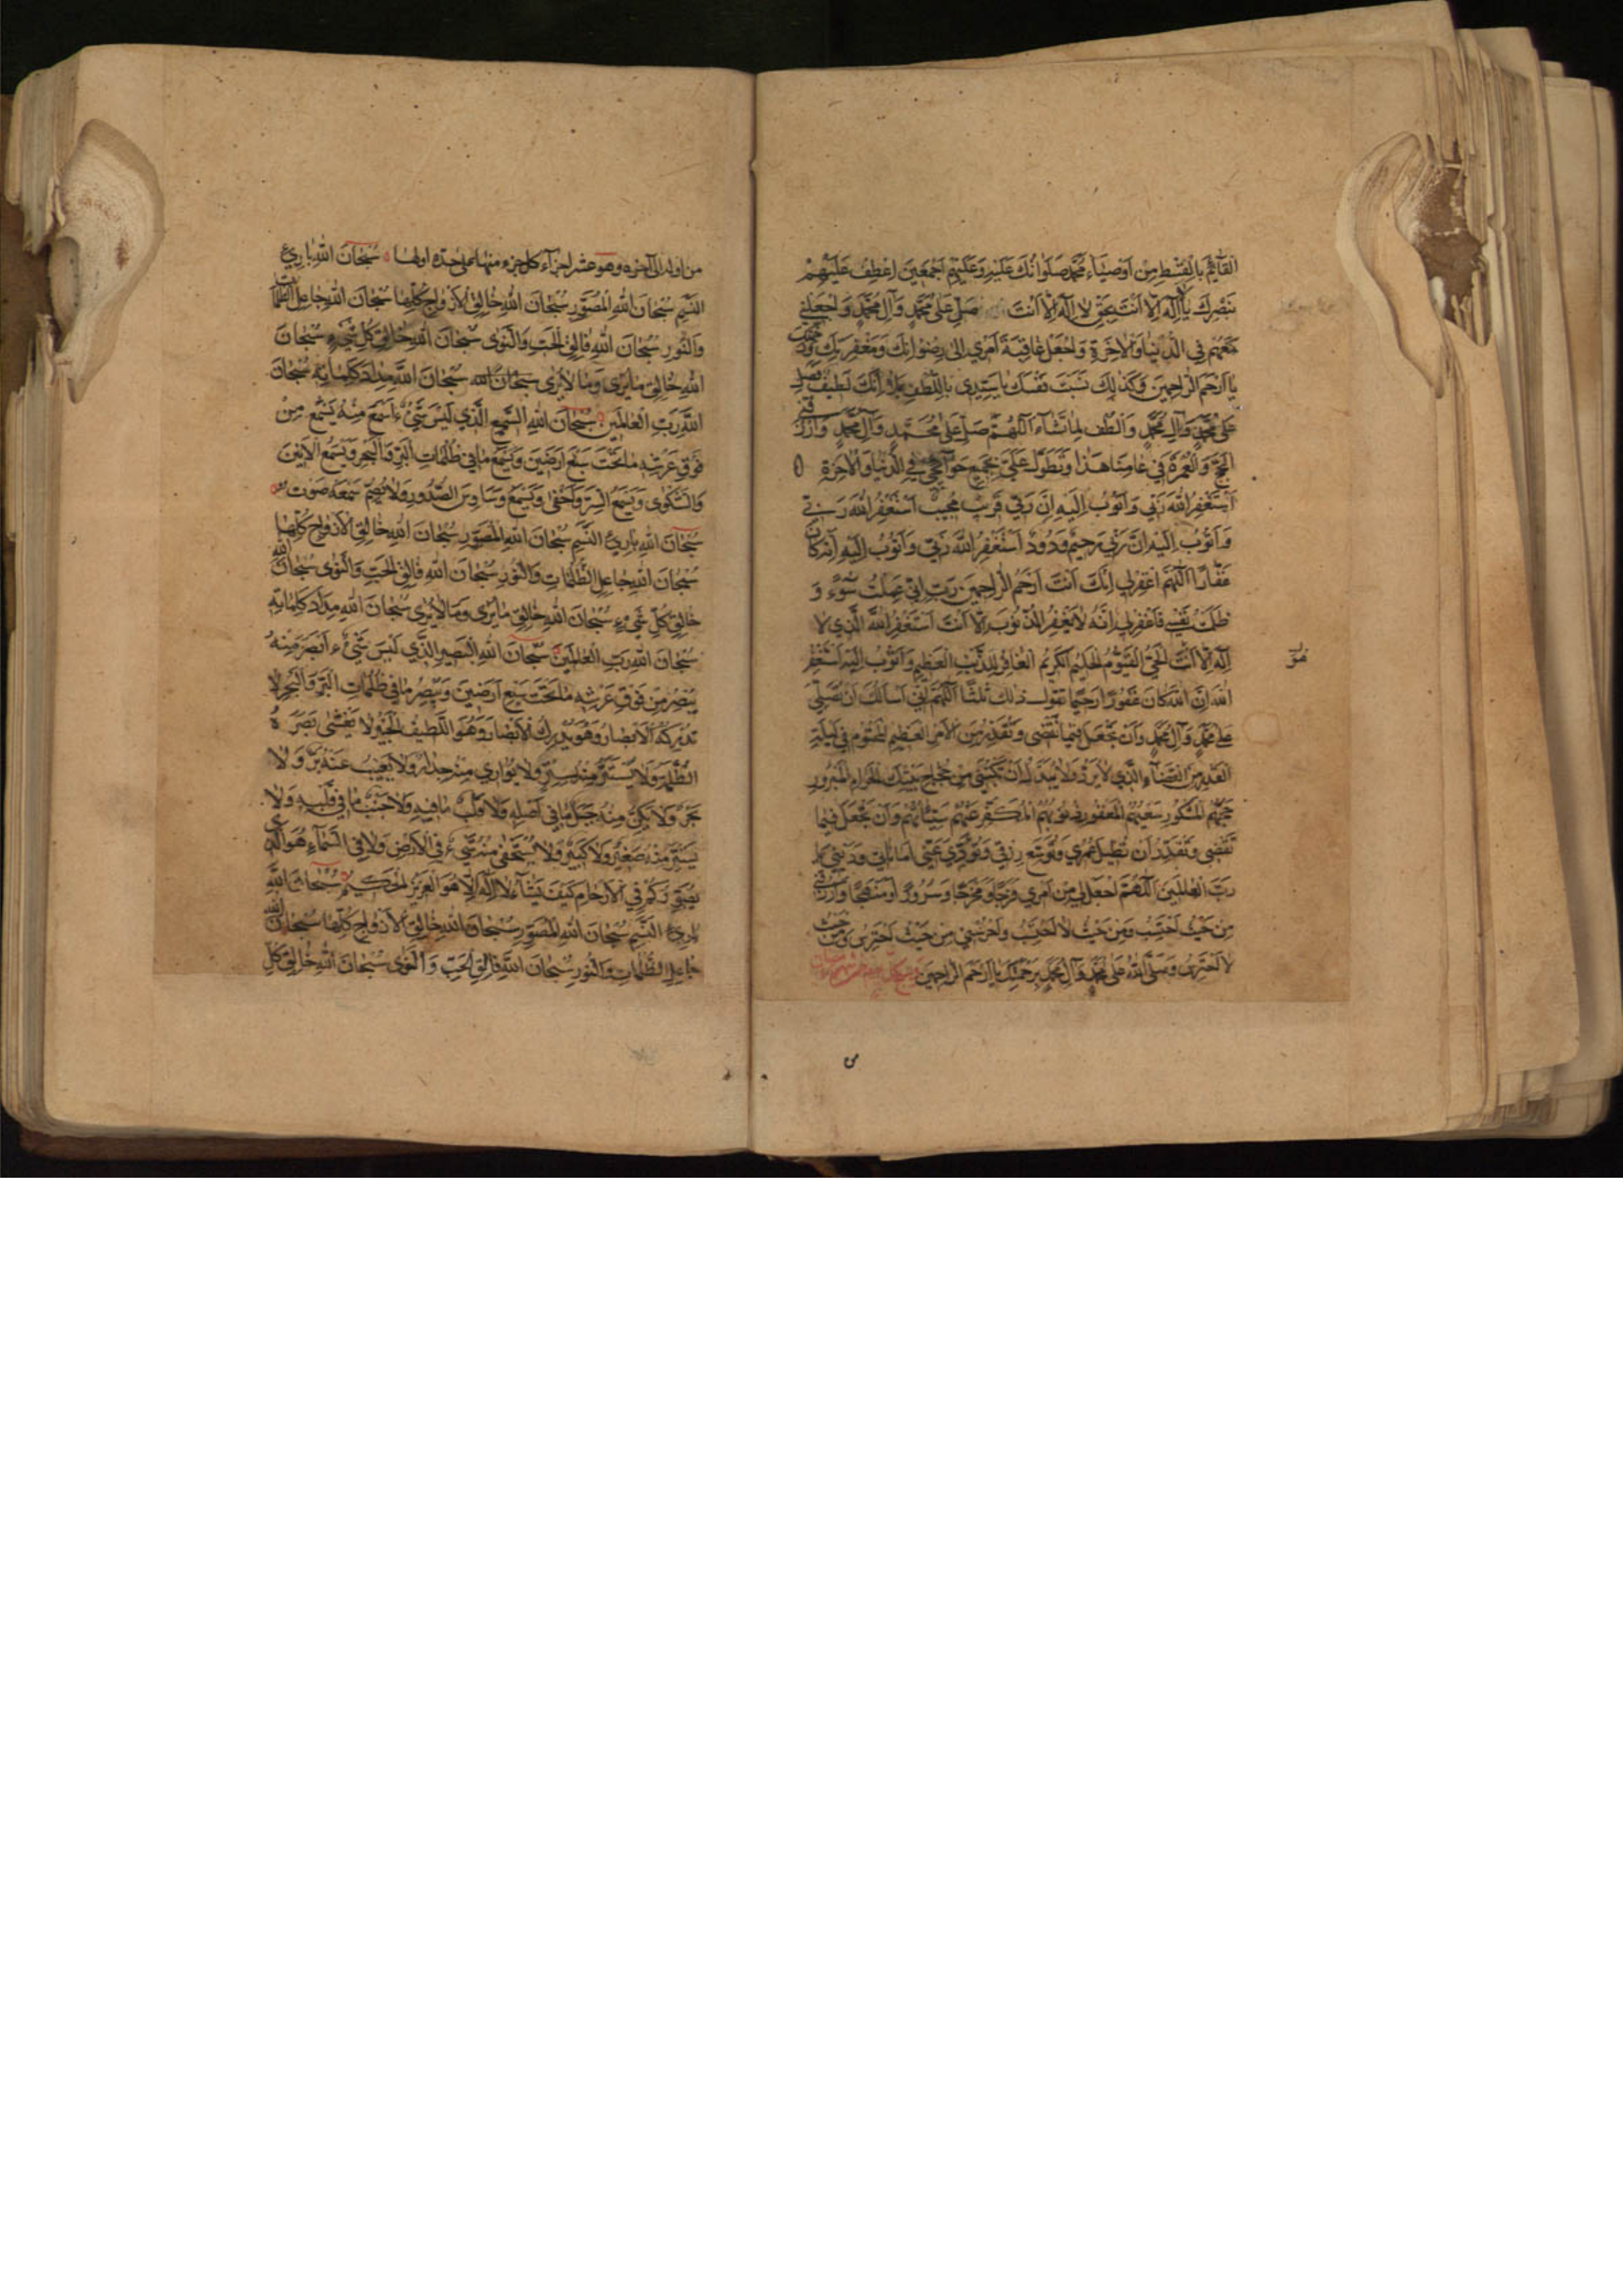 القائم بالقسط من اوصياء محمد صلواتك عليه وعليهم اجمعين اعطف عليهم
نصرك يا لا اله الا انت بحق لا اله الا انت صل على محمد وآل محمد واجعلني
معهم في الدنيا والاخرة واجعل عاقبة امري الى رضوانك ومغفرتك ورحمتك
يا ارحم الراحمين وكذلك نسبت نفسك يا سيدي باللطف بلى انك لطيف فصل
على محمد وآل محمد والطف لما تشاء اللهم صل على محمد وآل محمد وارزقني
الحج والعمرة في عامنا هذا وتطول علي بجميع حوآئجي في الدنيا والاخرة
استغفر الله ربي واتوب اليه ان ربي قريب مجيب استغفر الله ربي
واتوب اليه ان ربي رحيم ودود استغفر الله ربي واتوب اليه انه كان
غفارا اللهم اغفر لي انك انت ارحم الراحمين رب اني عملت سوء و
ظلمت نفسي فاغفر لي انه لا يغفر الذنوب الا انت استغفر الله الذي لا
اله الا انت الحي القيوم الحليم الكريم الغافر للذنب العظيم واتوب اليه استغفر
الله ان الله كان غفورا رحيما تقول ذلك ثلثا اللهم اني اسألك ان تصلي
على محمد وآل محمد وان تجعل فيما تقضي وتقدر من الامر العظيم المحتوم في ليلة
القدر من القضآء الذي لا يرد ولا يبدل ان تكتبني من حجاج بيتك الحرام المبرور
حجهم المشكور سعيهم المغفور ذنوبهم المكفر عنهم سيئاتهم وان تجعل فيما
تقضي وتقدر ان تطيل عمري وتوسع رزقي وتؤدي عني امانتي وديني يا
رب العالمين اللهم اجعل لي من امري فرجا ومخرجا وارزقني
من حيث احتسب ومن حيث لا احتسب واحرسني من حيث احترس ومن حيث
لا احترس وصلى الله على محمد وآل محمد برحمتك يا ارحم الراحمين
من اوله الى آخره وهو عشر اجزآء كل جزء منها على حدة اولها سبحان الله بارئ
النسم سبحان الله المصور سبحان الله خالق الازواج كلها سبحان الله جاعل الظلمات
والنور سبحان الله فالق الحب والنوى سبحان الله خالق كل شيء سبحان
الله خالق ما يرى وما لا يرى سبحان الله سبحان الله مداد كلماته سبحان
الله رب العالمين سبحان الله السميع الذي ليس شيء اسمع منه يسمع من
فوق عرشه ما تحت سبع ارضين ويسمع ما في ظلمات البر والبحر ويسمع الانين
والشكوى ويسمع السر واخفى ويسمع وساوس الصدور ولا يصم سمعه صوت
سبحان الله بارئ النسم سبحان الله المصور سبحان الله خالق الازواج كلها
سبحان الله جاعل الظلمات والنور سبحان الله فالق الحب والنوى سبحان الله
خالق كل شيء سبحان الله خالق ما يرى وما لا يرى سبحان الله مداد كلماته
سبحان الله رب العالمين سبحان الله البصير الذي ليس شيء ابصر منه
يبصر من فوق عرشه ما تحت سبع ارضين ويبصر ما في ظلمات البر والبحر لا
تدركه الابصار وهو يدرك الابصار وهو اللطيف الخبير لا تغشى بصره
الظلمة ولا يستتر منه بستر ولا يواري منه جدار ولا يغيب عنه بر ولا
بحر ولا يكن منه جبل ما في اصله ولا قلب ما فيه ولا جنب ما في قلبه ولا
يستتر منه صغير ولا كبير ولا يستخفي منه شيء في الارض ولا في السمآء هو الذي
يصوركم في الارحام كيف يشآء لا اله الا هو العزيز الحكيم سبحان الله
بارئ النسم سبحان الله المصور سبحان الله خالق الازواج كلها سبحان الله
جاعل الظلمات والنور سبحان الله فالق الحب والنوى سبحان الله خالق كل